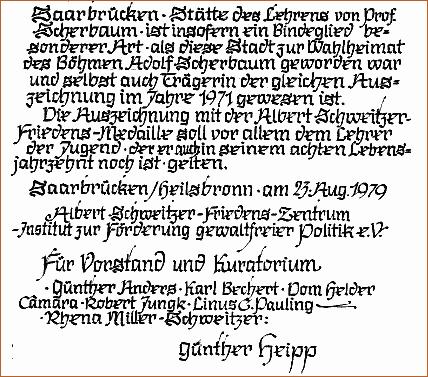 Saarbrücken · Stätte des Lehrens von Prof.
Scherbaum · ist insofern ein Bindeglied be-
sonderer Art · als diese Stadt zur Wahlheimat
des Böhmen Adolf Scherbaum geworden war
und selbst auch Trägerin der gleichen Aus-
zeichnung im Jahre 1971 gewesen ist.
Die Auszeichnung mit der Albert Schweitzer-
Friedens-Medaille soll vor allem dem Lehrer
der Jugend · der er auch in seinem achten Lebens-
jahrzehnt noch ist · gelten.
Saarbrücken/Heilsbronn · am 23. Aug. 1979
Albert-Schweitzer-Friedens-Zentrum
-Institut zur Förderung gewaltfreier Politik e.V.-
Für Vorstand und Kuratorium
· Günther Anders · Karl Bechert · Dom Helder
Câmara · Robert Jungk · Linus C. Pauling
· Rhena Miller-Schweitzer:
Günther Heipp